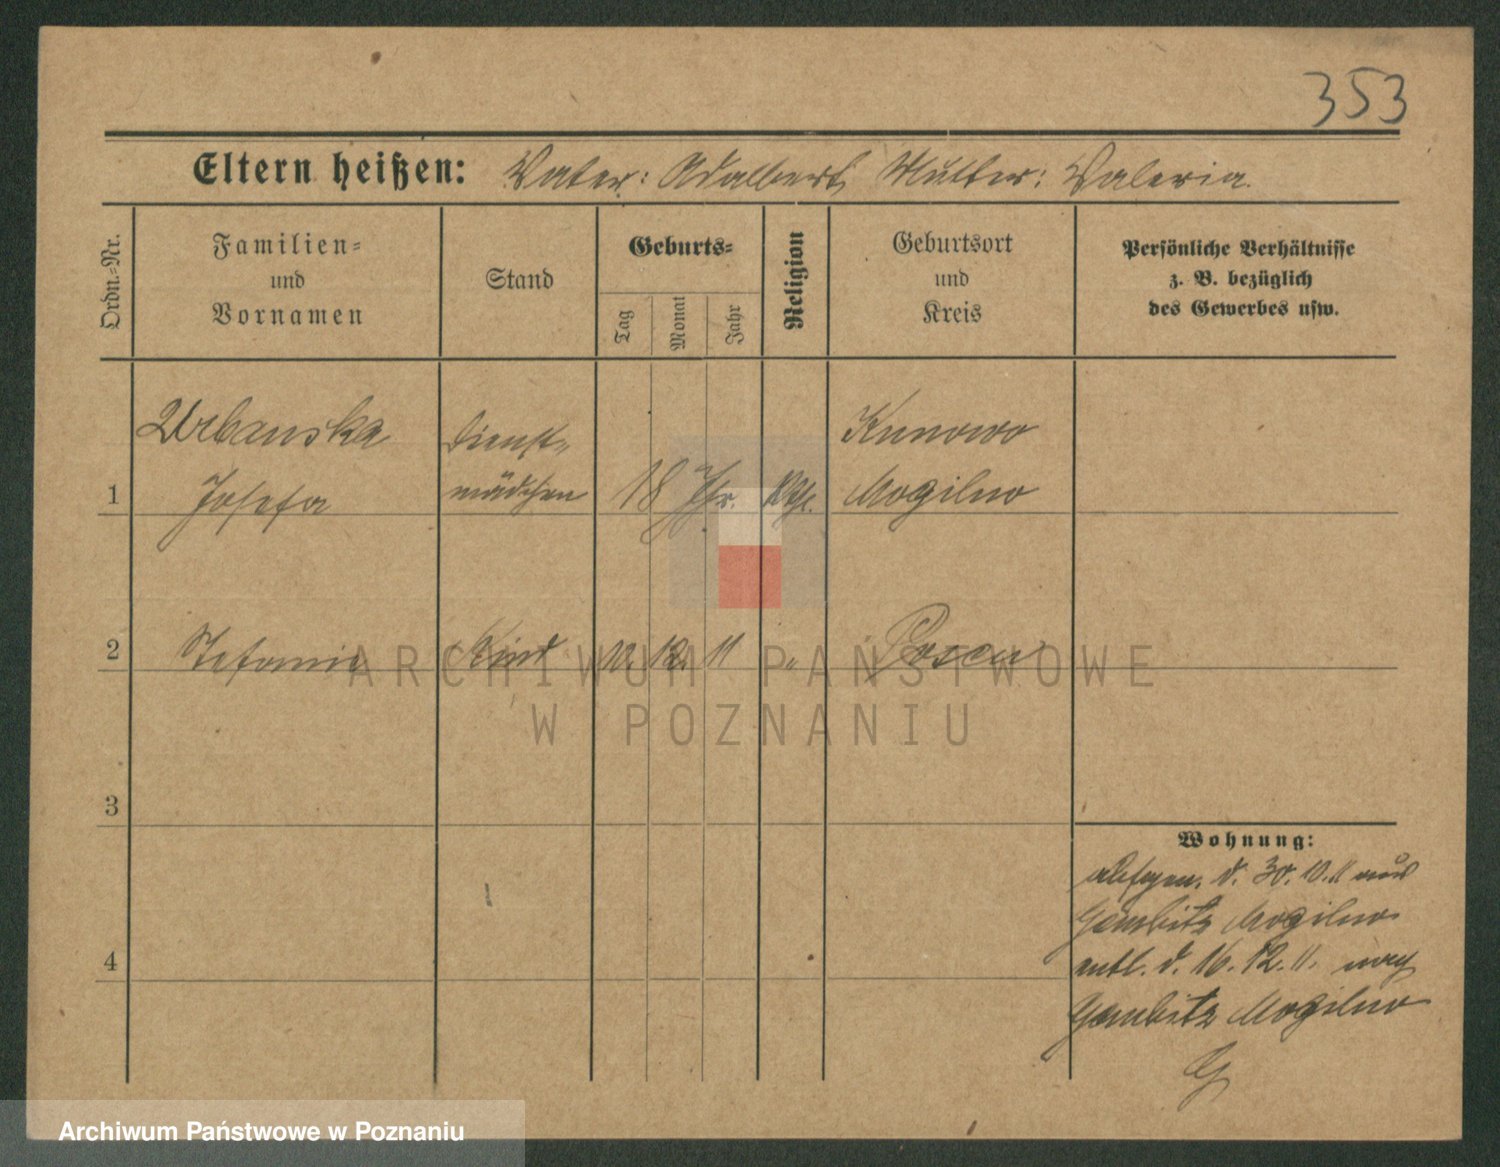 353
Eltern heißen: Vater: Adalbert, Mutter: Valeria.
Ordn.-Nr.
Familien-
und
Vornamen
Stand
Geburts-
Tag
Monat
Jahr
Religion
Geburtsort
und
Kreis
Persönliche Verhältnisse
z. B. bezüglich
des Gewerbes usw.
Urbanska Dienst- Kunowo
1 Josefa mädchen 18 Jhr. Mogilno
2 Stefanie Kind 12. 11 " Posen
ARCHIWUM PAŃSTWOWE
W POZNANIU
3
Wohnung:
d. 30. 10. 11 aus
Gembitz Mogilno
4 entl. d. 16. 12. 11. nach
Gembitz Mogilno
G
Archiwum Państwowe w Poznaniu